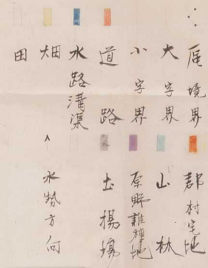 境界
大字界
小字界
道路
水路溝渠
畑
田
郡村宅地
山林
原野雑種地
土揚場
水勢方向